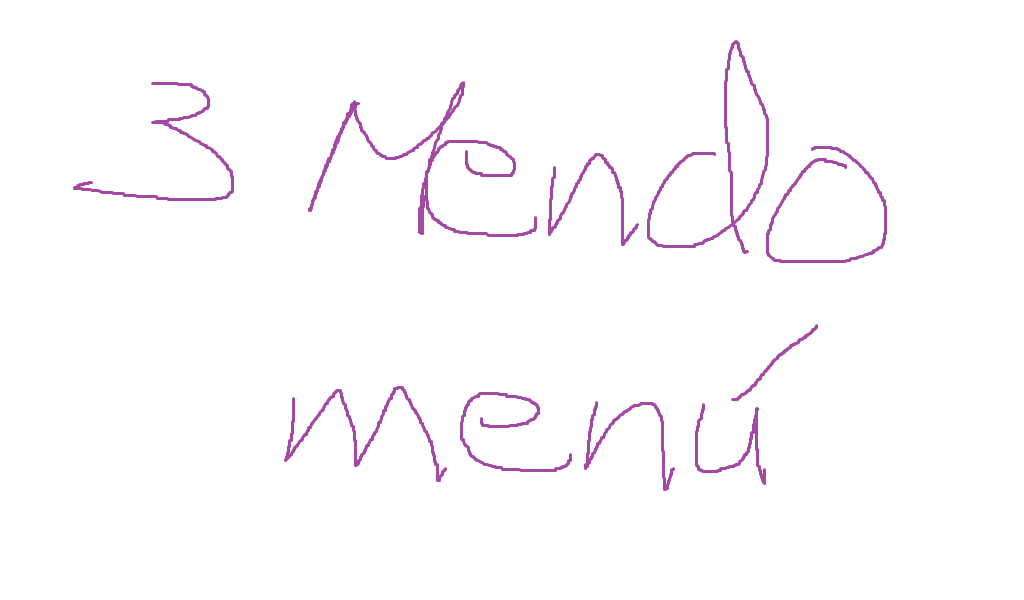 3 Mendo
menú